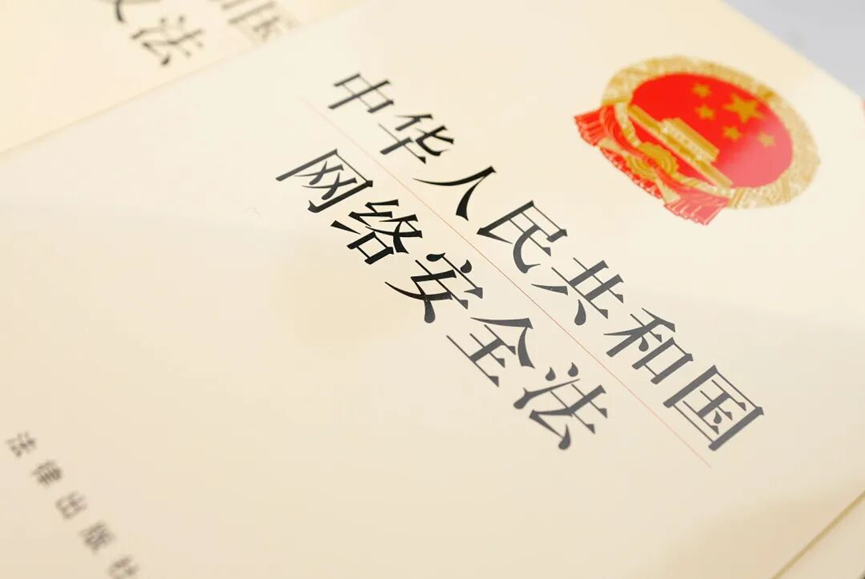 中华人民共和国
网络安全法
法律出版社
法
国